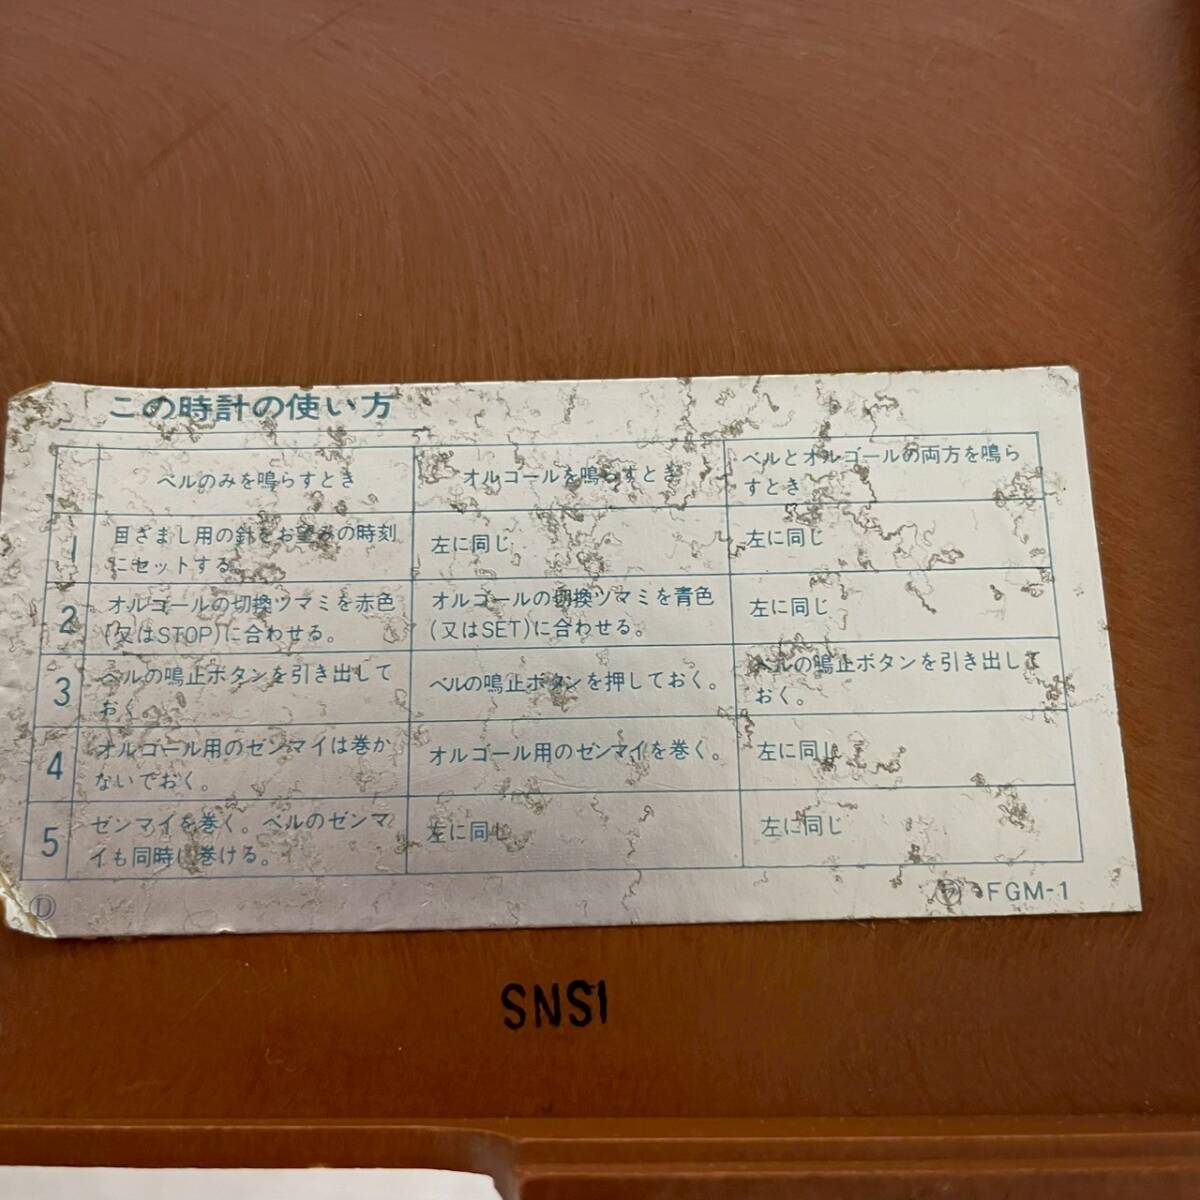 この時計の使い方
ベルのみを鳴らすとき
オルゴールを鳴らすとき
ベルとオルゴールの両方を鳴ら
すとき
1
目ざまし用の針をお望みの時刻
にセットする。
左に同じ
左に同じ
2
オルゴールの切換ツマミを赤色
(又はSTOP)に合わせる。
オルゴールの切換ツマミを青色
(又はSET)に合わせる。
左に同じ
3
ベルの鳴止ボタンを引き出して
おく。
ベルの鳴止ボタンを押しておく。
ベルの鳴止ボタンを引き出して
おく。
4
オルゴール用のゼンマイは巻か
ないでおく。
オルゴール用のゼンマイを巻く。
左に同じ
5
ゼンマイを巻く。ベルのゼンマ
イも同時に巻ける。
左に同じ
左に同じ
Ⓓ
FGM-1
SNS1